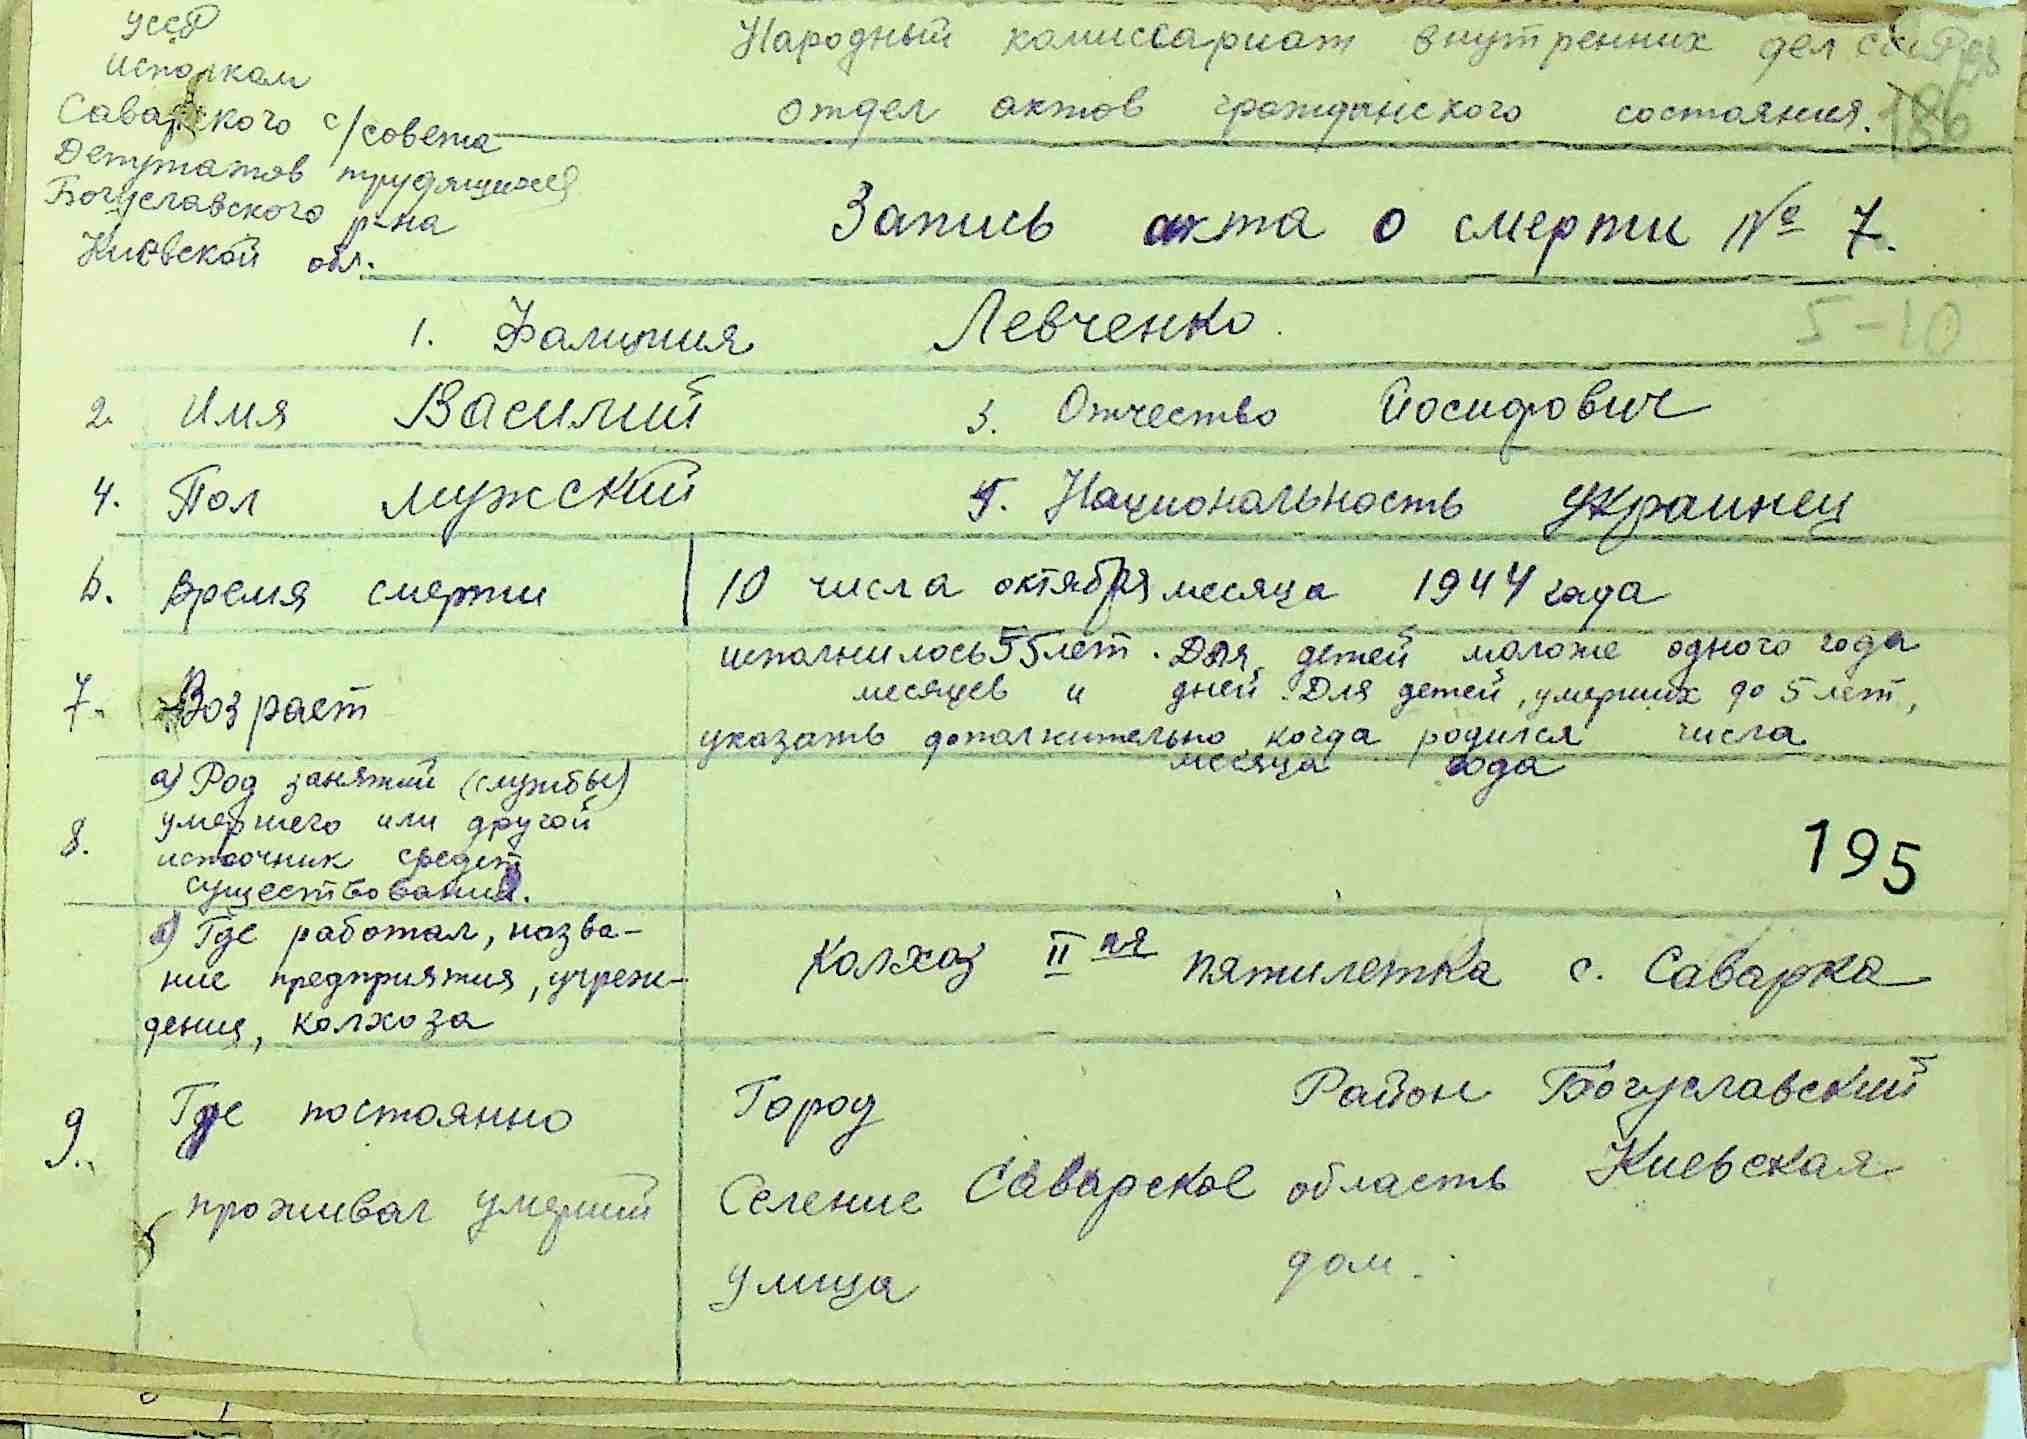 УССР
Исполком
Саварского с/совета
Депутатов трудящихся
Богуславского р-на
Киевской обл.
Народный комиссариат внутренних дел
отдел актов гражданского состояния.
186
Запись акта о смерти № 7.
5-10
1. Фамилия Левченко.
2. Имя Василий 3. Отчество Йосифович
4. Пол мужский 5. Национальность украинец
6. Время смерти 10 числа октября месяца 1944 года
7. Возраст
исполнилось 55 лет. Для детей моложе одного года
месяцев и дней. Для детей, умерших до 5 лет,
указать дополнительно когда родился числа
месяца года
8. а) Род занятий (службы)
умершего или другой
источник средств
существования.
195
б) Где работал, назва-
ние предприятия, учреж-
дения, колхоза
Колхоз II ая пятилетка с. Саварка
9. Где постоянно
проживал умерший
Город Район Богуславский
Селение Саварское область Киевская
улица дом.